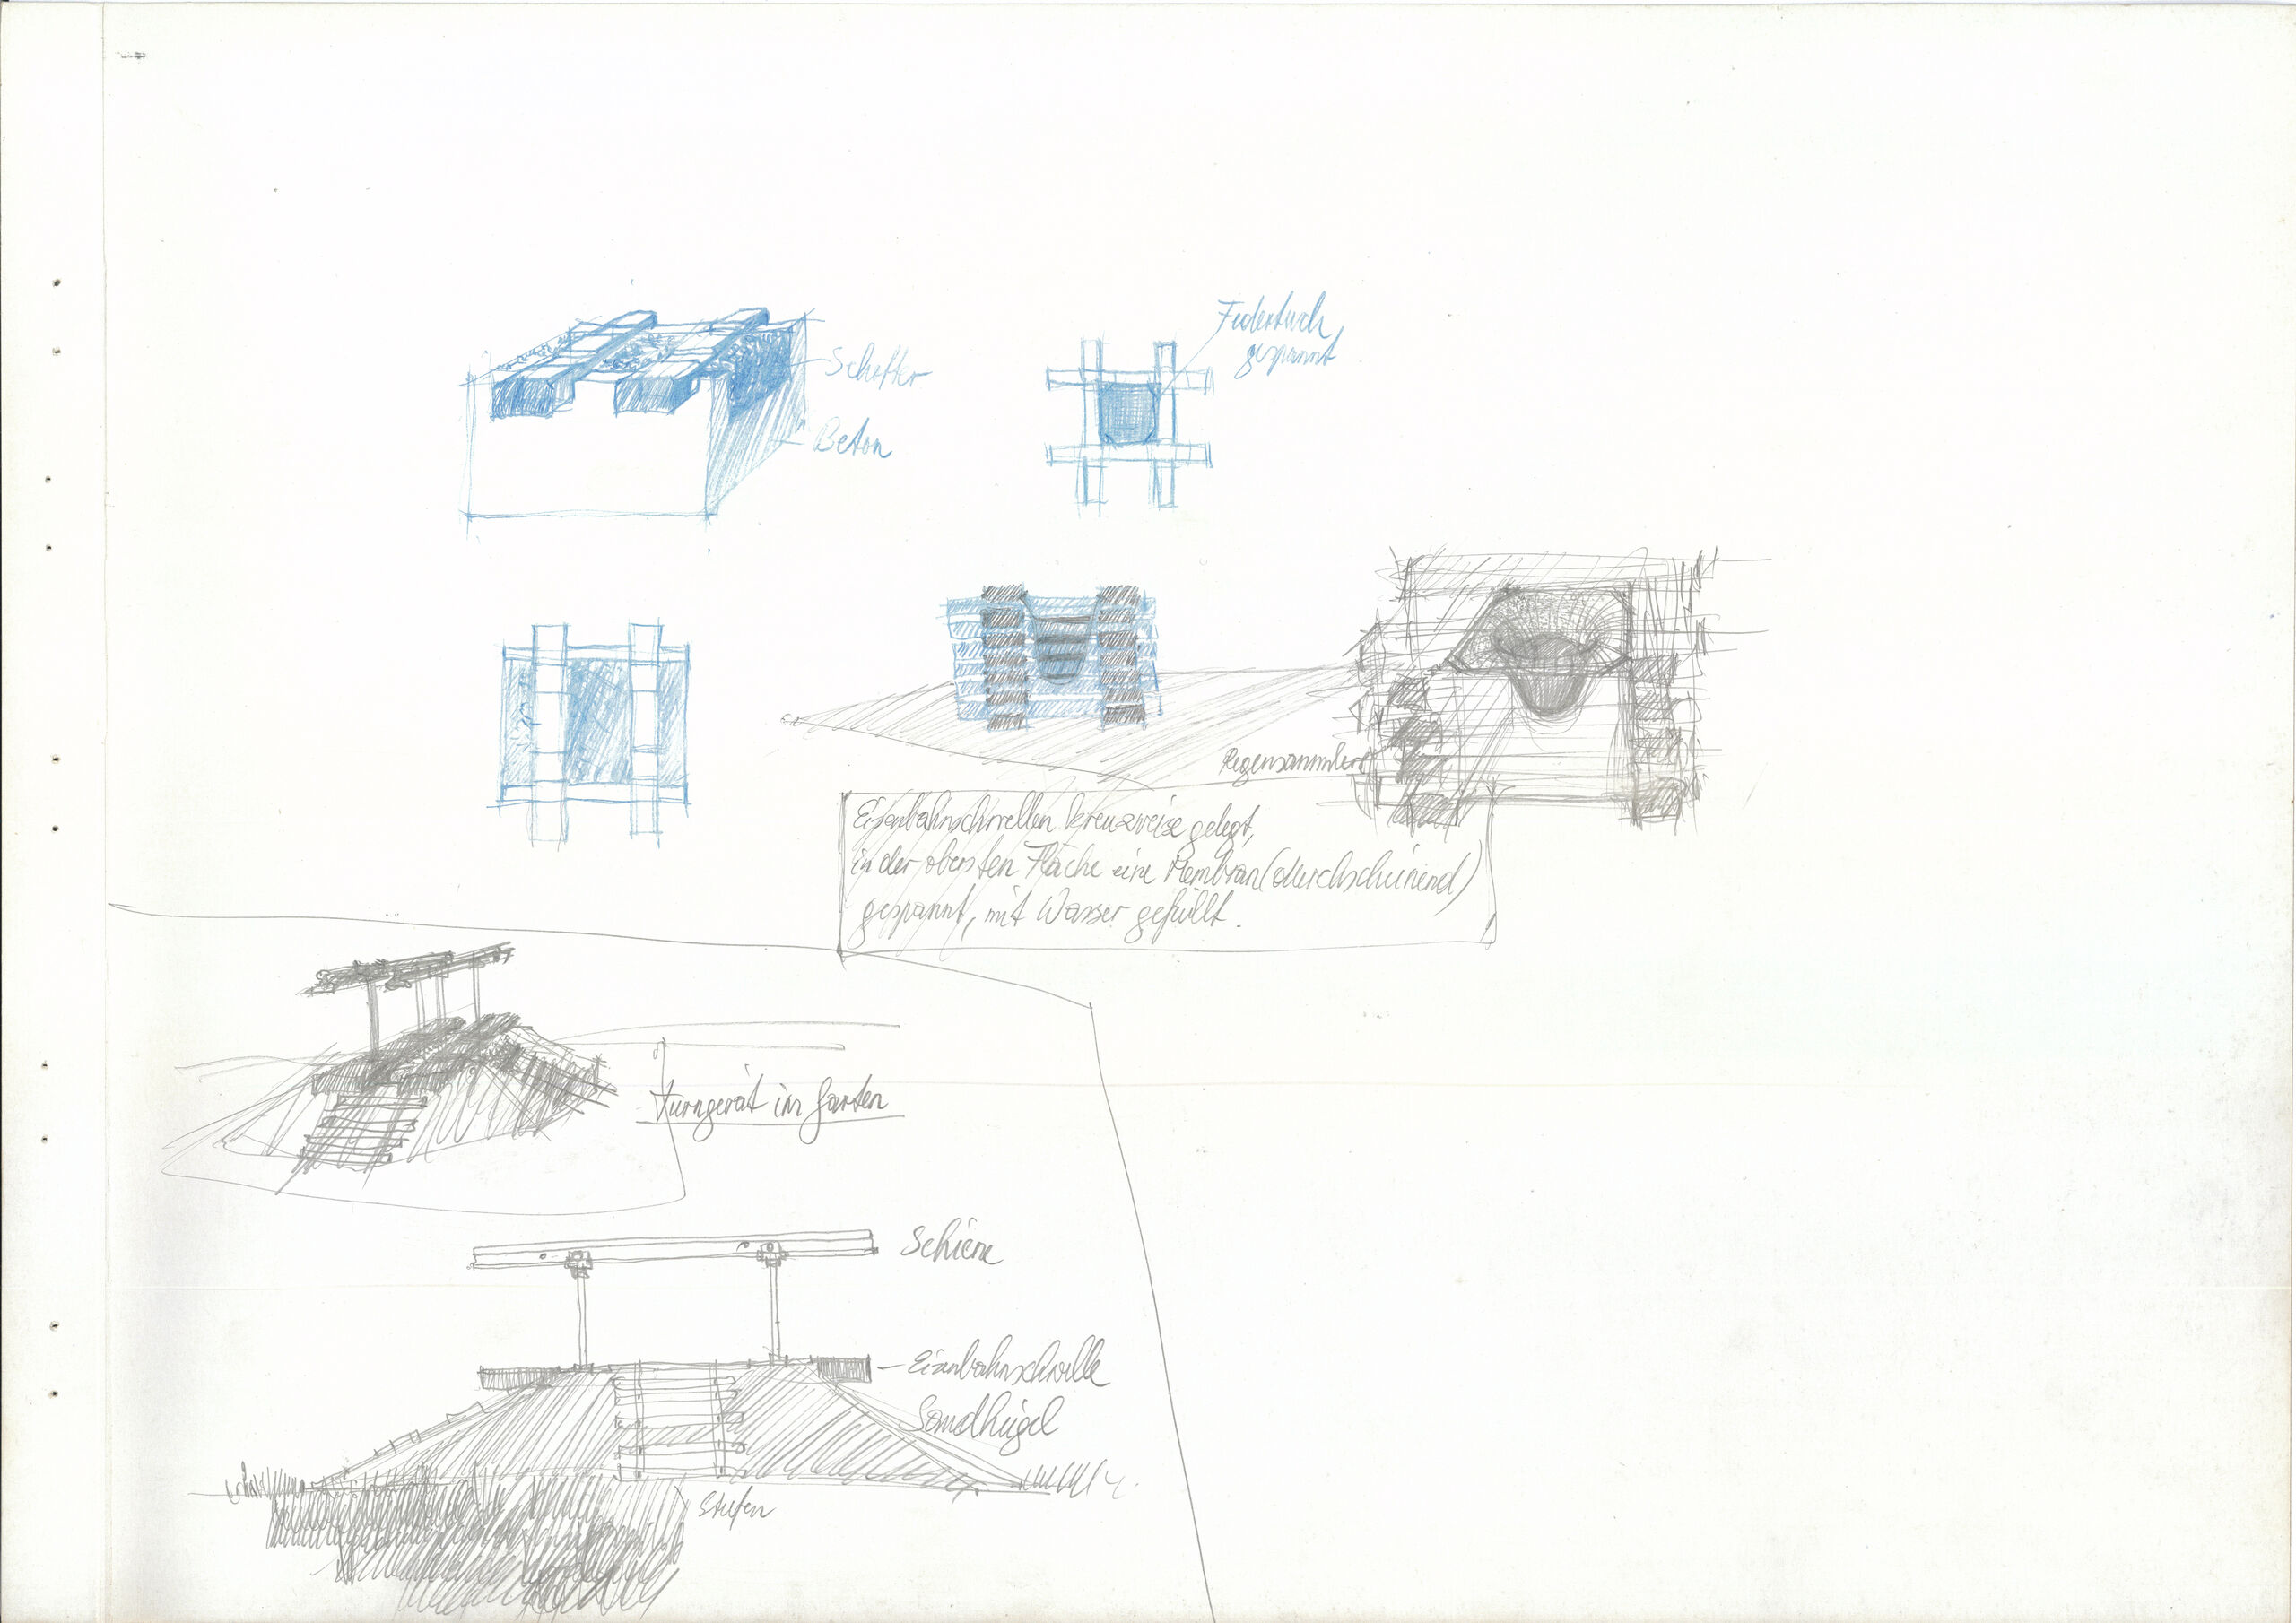 Federtuch
gespannt
Schotter
Beton
Regensammler
Eisenbahnschwellen kreuzweise gelegt,
in der obersten Fläche eine Membran (durchscheinend)
gespannt, mit Wasser gefüllt.
Turngerät im Garten
Schiene
Eisenbahnschwelle
Sandhügel
Stufen